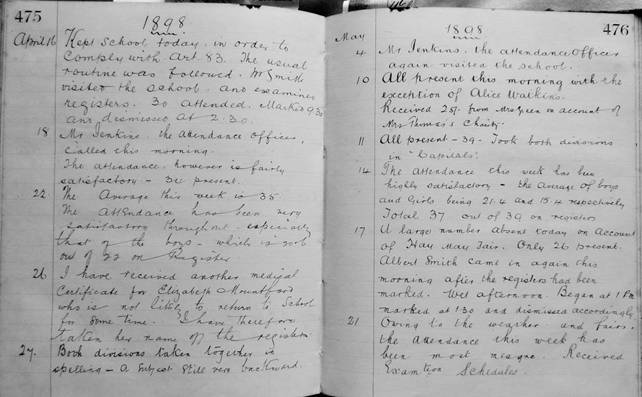 475
1898.
April 16 Kept School today in order to
comply with Art. 83. The usual
routine was followed. Mr Smith
visited the school and examined
registers. 30 attended. Marked 9.30
and dismissed at 2.30.
18 Mr Jenkins the attendance officer,
called this morning.
The attendance however is fairly
satisfactory – 34 present.
22 The Average this week is 35.
The Attendance has been very
satisfactory throughout – especially
that of the boys – which is
out of 22 on Register
26 I have received another medical
Certificate for Elizabeth Mountford
who is not likely to return to School
for some time. I have therefore
taken her name off the registers.
27. Both divisions taken together in
spelling – a subject still very backward.
476
1898
May
4 Mr Jenkins, the attendance Officer
again visited the school.
10 All present this morning with the
exception of Alice Watkins.
Received 25/- from Mrs Green on account of
Mrs Thomas's Charity.
11 All present – 39 – Took both divisions
in "Capitals".
14 The attendance this week has been
highly satisfactory – the average of boys
and Girls being 21.4 and 15.4 respectively
Total 37 out of 39 on registers
17 A large number absent today on account
of Hay May Fair. Only 26 present.
Albert Smith came in again this
morning after the registers had been
marked. Wet afternoon. Began at 1 P.m
marked at 1.30 and dismissed accordingly
21 Owing to the weather and fairs,
the attendance this week has
been most meagre. Received
Examtion Schedules.